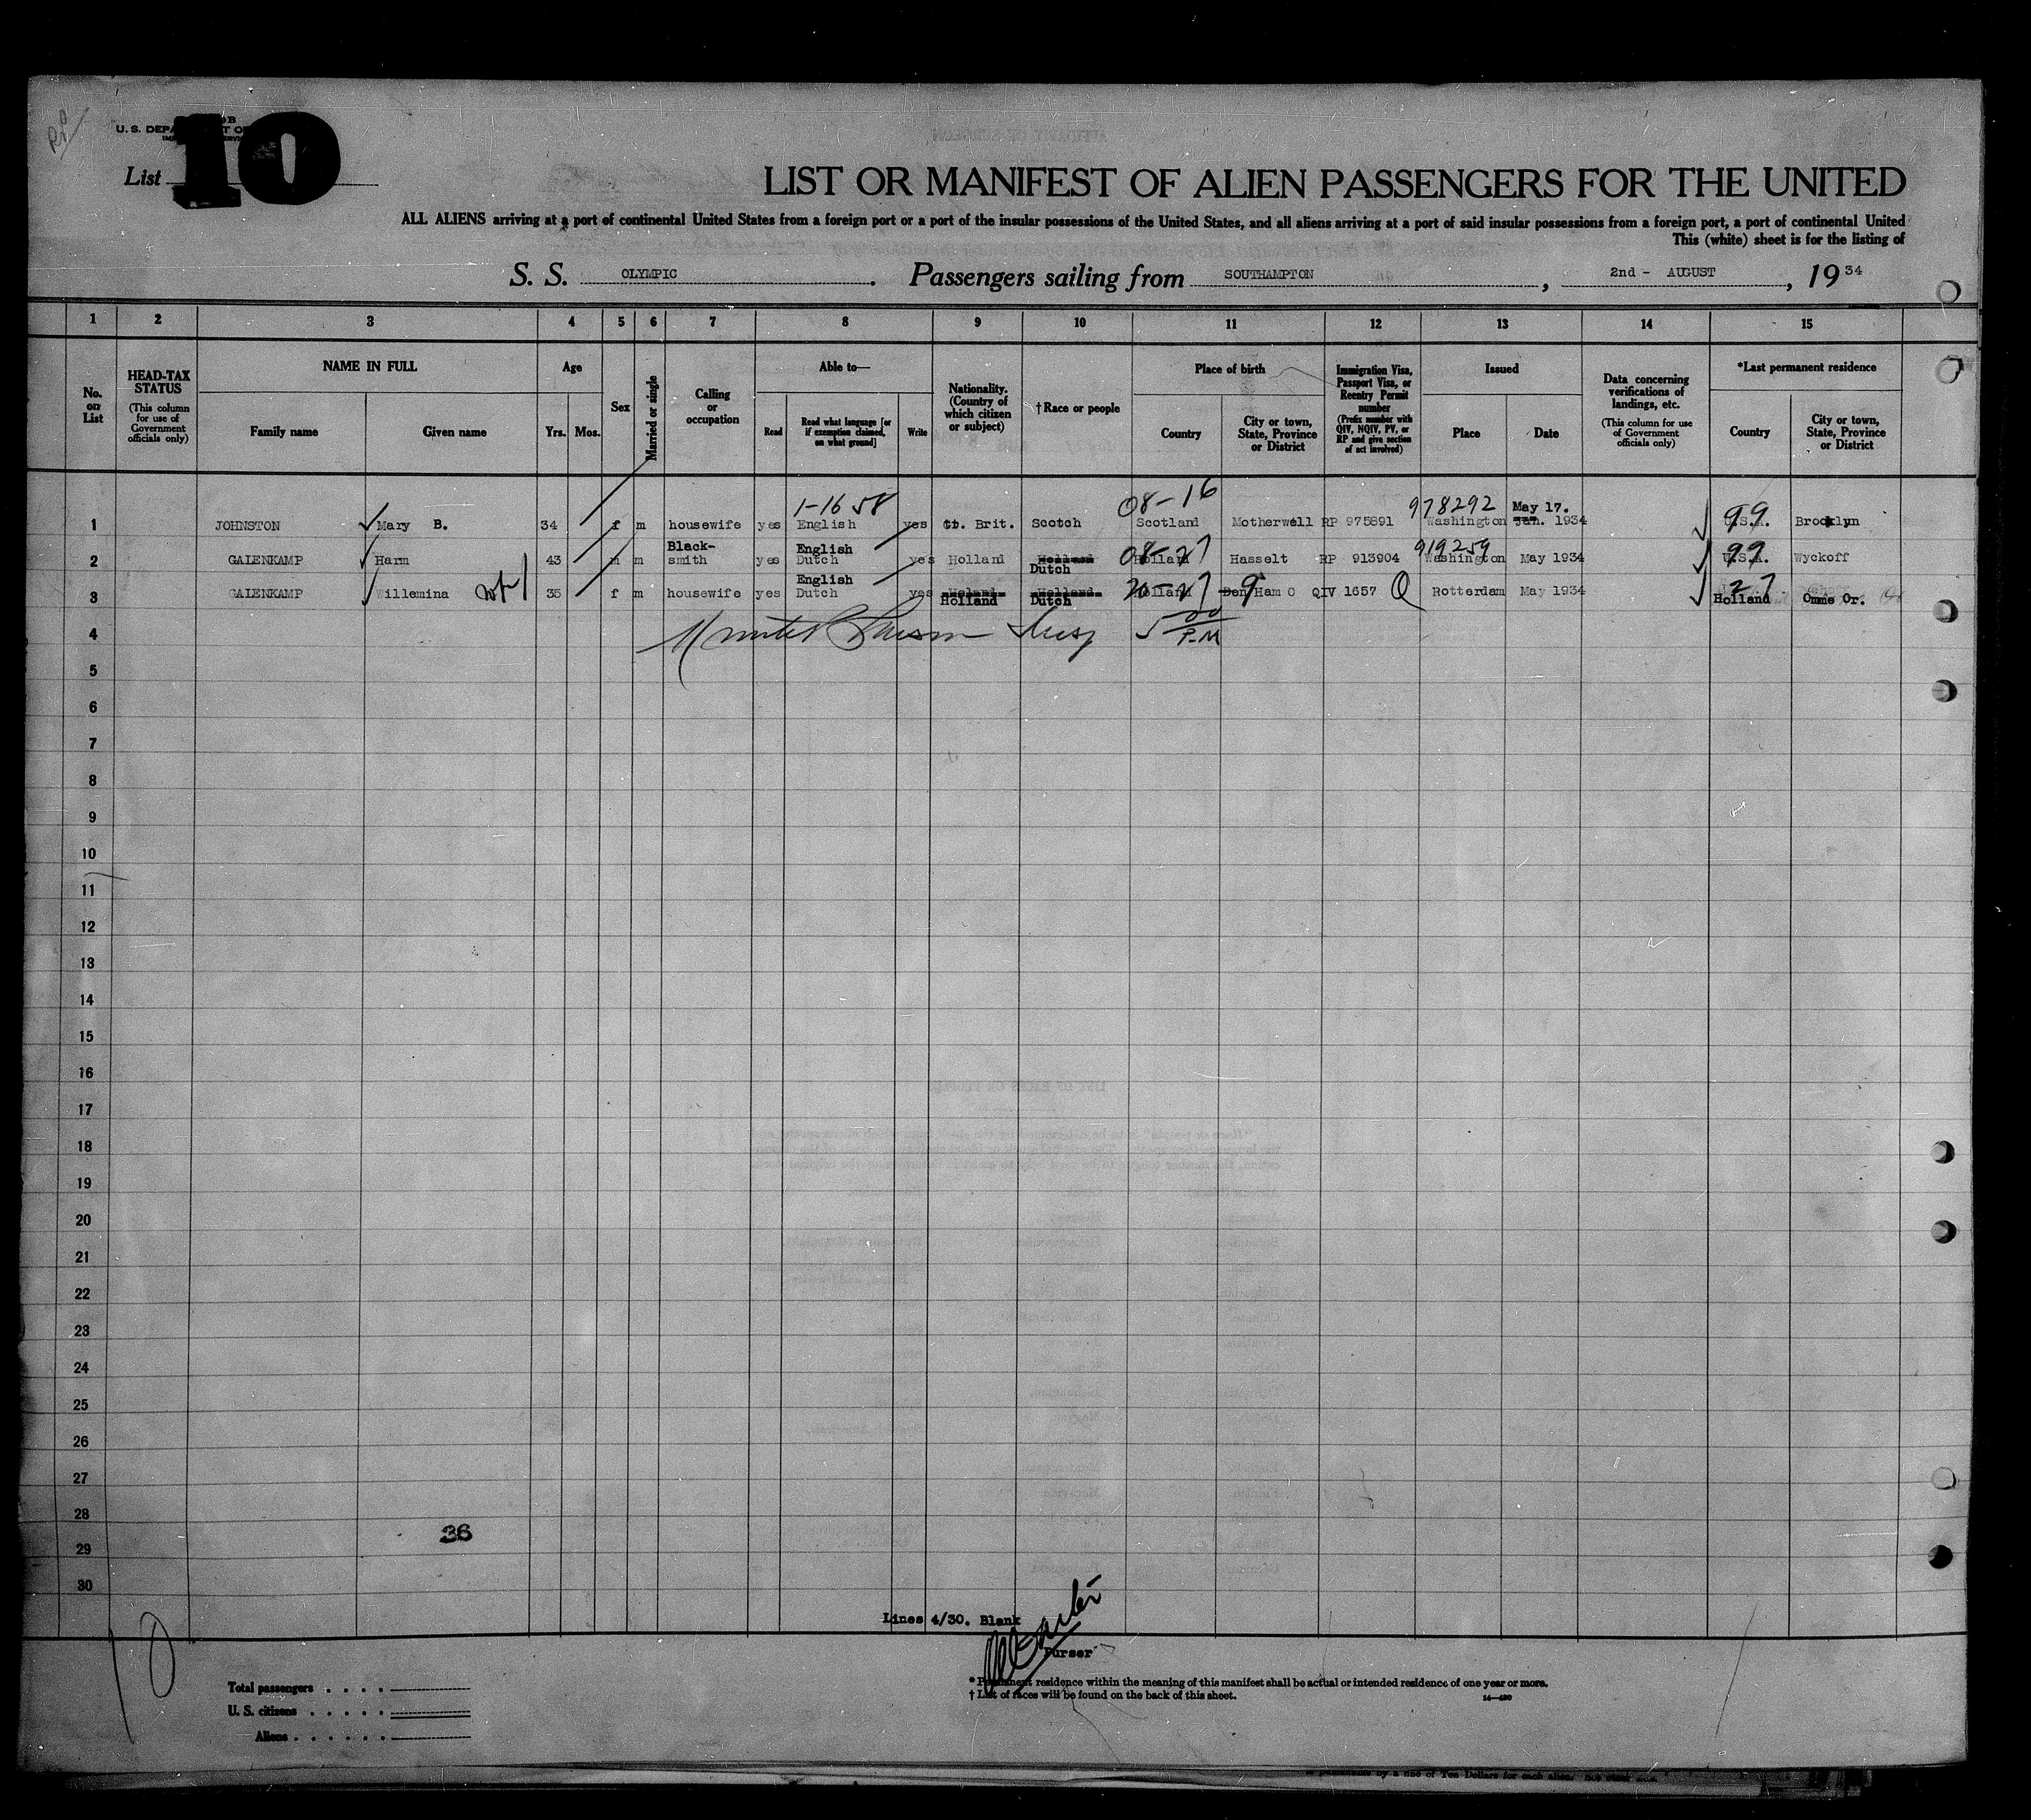 10
U. S. DEPA
List
LIST OR MANIFEST OF ALIEN PASSENGERS FOR THE UNITED
ALL ALIENS arriving at a port of continental United States from a foreign port or a port of the insular possessions of the United States, and all aliens arriving at a port of said insular possessions from a foreign port, a port of continental United
This (white) sheet is for the listing of
S. S. OLYMPIC. Passengers sailing from SOUTHAMPTON, 2nd - AUGUST, 1934
1 2 3 4 5 6 7 8 9 10 11 12 13 14 15
No. on List
HEAD-TAX STATUS (This column for use of Government officials only)
NAME IN FULL
Family name
Given name
Age
Yrs. Mos.
Sex
Married or single
Calling or occupation
Able to—
Read
Read what language [or if exemption claimed, on what ground]
Write
Nationality. (Country of which citizen or subject)
†Race or people
Place of birth
Country
City or town, State, Province or District
Immigration Visa, Passport Visa, or Reentry Permit number (Prefix number with QIV, NQIV, PV, or RP and give section of act involved)
Issued
Place
Date
Data concerning verifications of landings, etc. (This column for use of Government officials only)
*Last permanent residence
Country
City or town, State, Province or District
1-16 58 08-16 978292 May 17.
1 JOHNSTON Mary B. 34 f m housewife yes English yes Gt. Brit. Scotch Scotland Motherwell RP 975891 Washington Jan. 1934 99 U.S.A. Brooklyn
Black- English 08-27 919259
2 GALENKAMP Harm 43 m m smith yes Dutch yes Holland Holland Hasselt RP 913904 Washington May 1934 99 U.S.A. Wyckoff
Dutch
English
3 GALENKAMP Willemina 35 f m housewife yes Dutch yes Holland Den Ham O QIV 1657 Q Rotterdam May 1934 27
Holland Dutch Holland Omme Or.
4 5 00 P.M
5
6
7
8
9
10
11
12
13
14
15
16
17
18
19
20
21
22
23
24
25
26
27
28
36
29
30
Lines 4/30. Blank
Purser
10
Total passengers
U. S. citizens
Aliens
* Permanent residence within the meaning of this manifest shall be actual or intended residence of one year or more.
† List of races will be found on the back of this sheet.
14—490